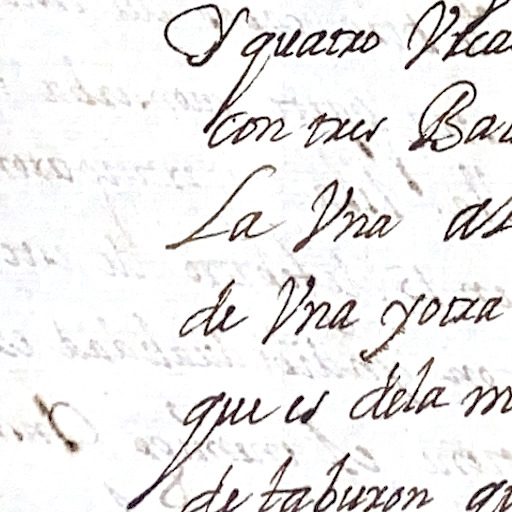 Y quatro Vsca
con tres Bar
La Vna al
de Vna yotra
que es dela m
de taburon qu